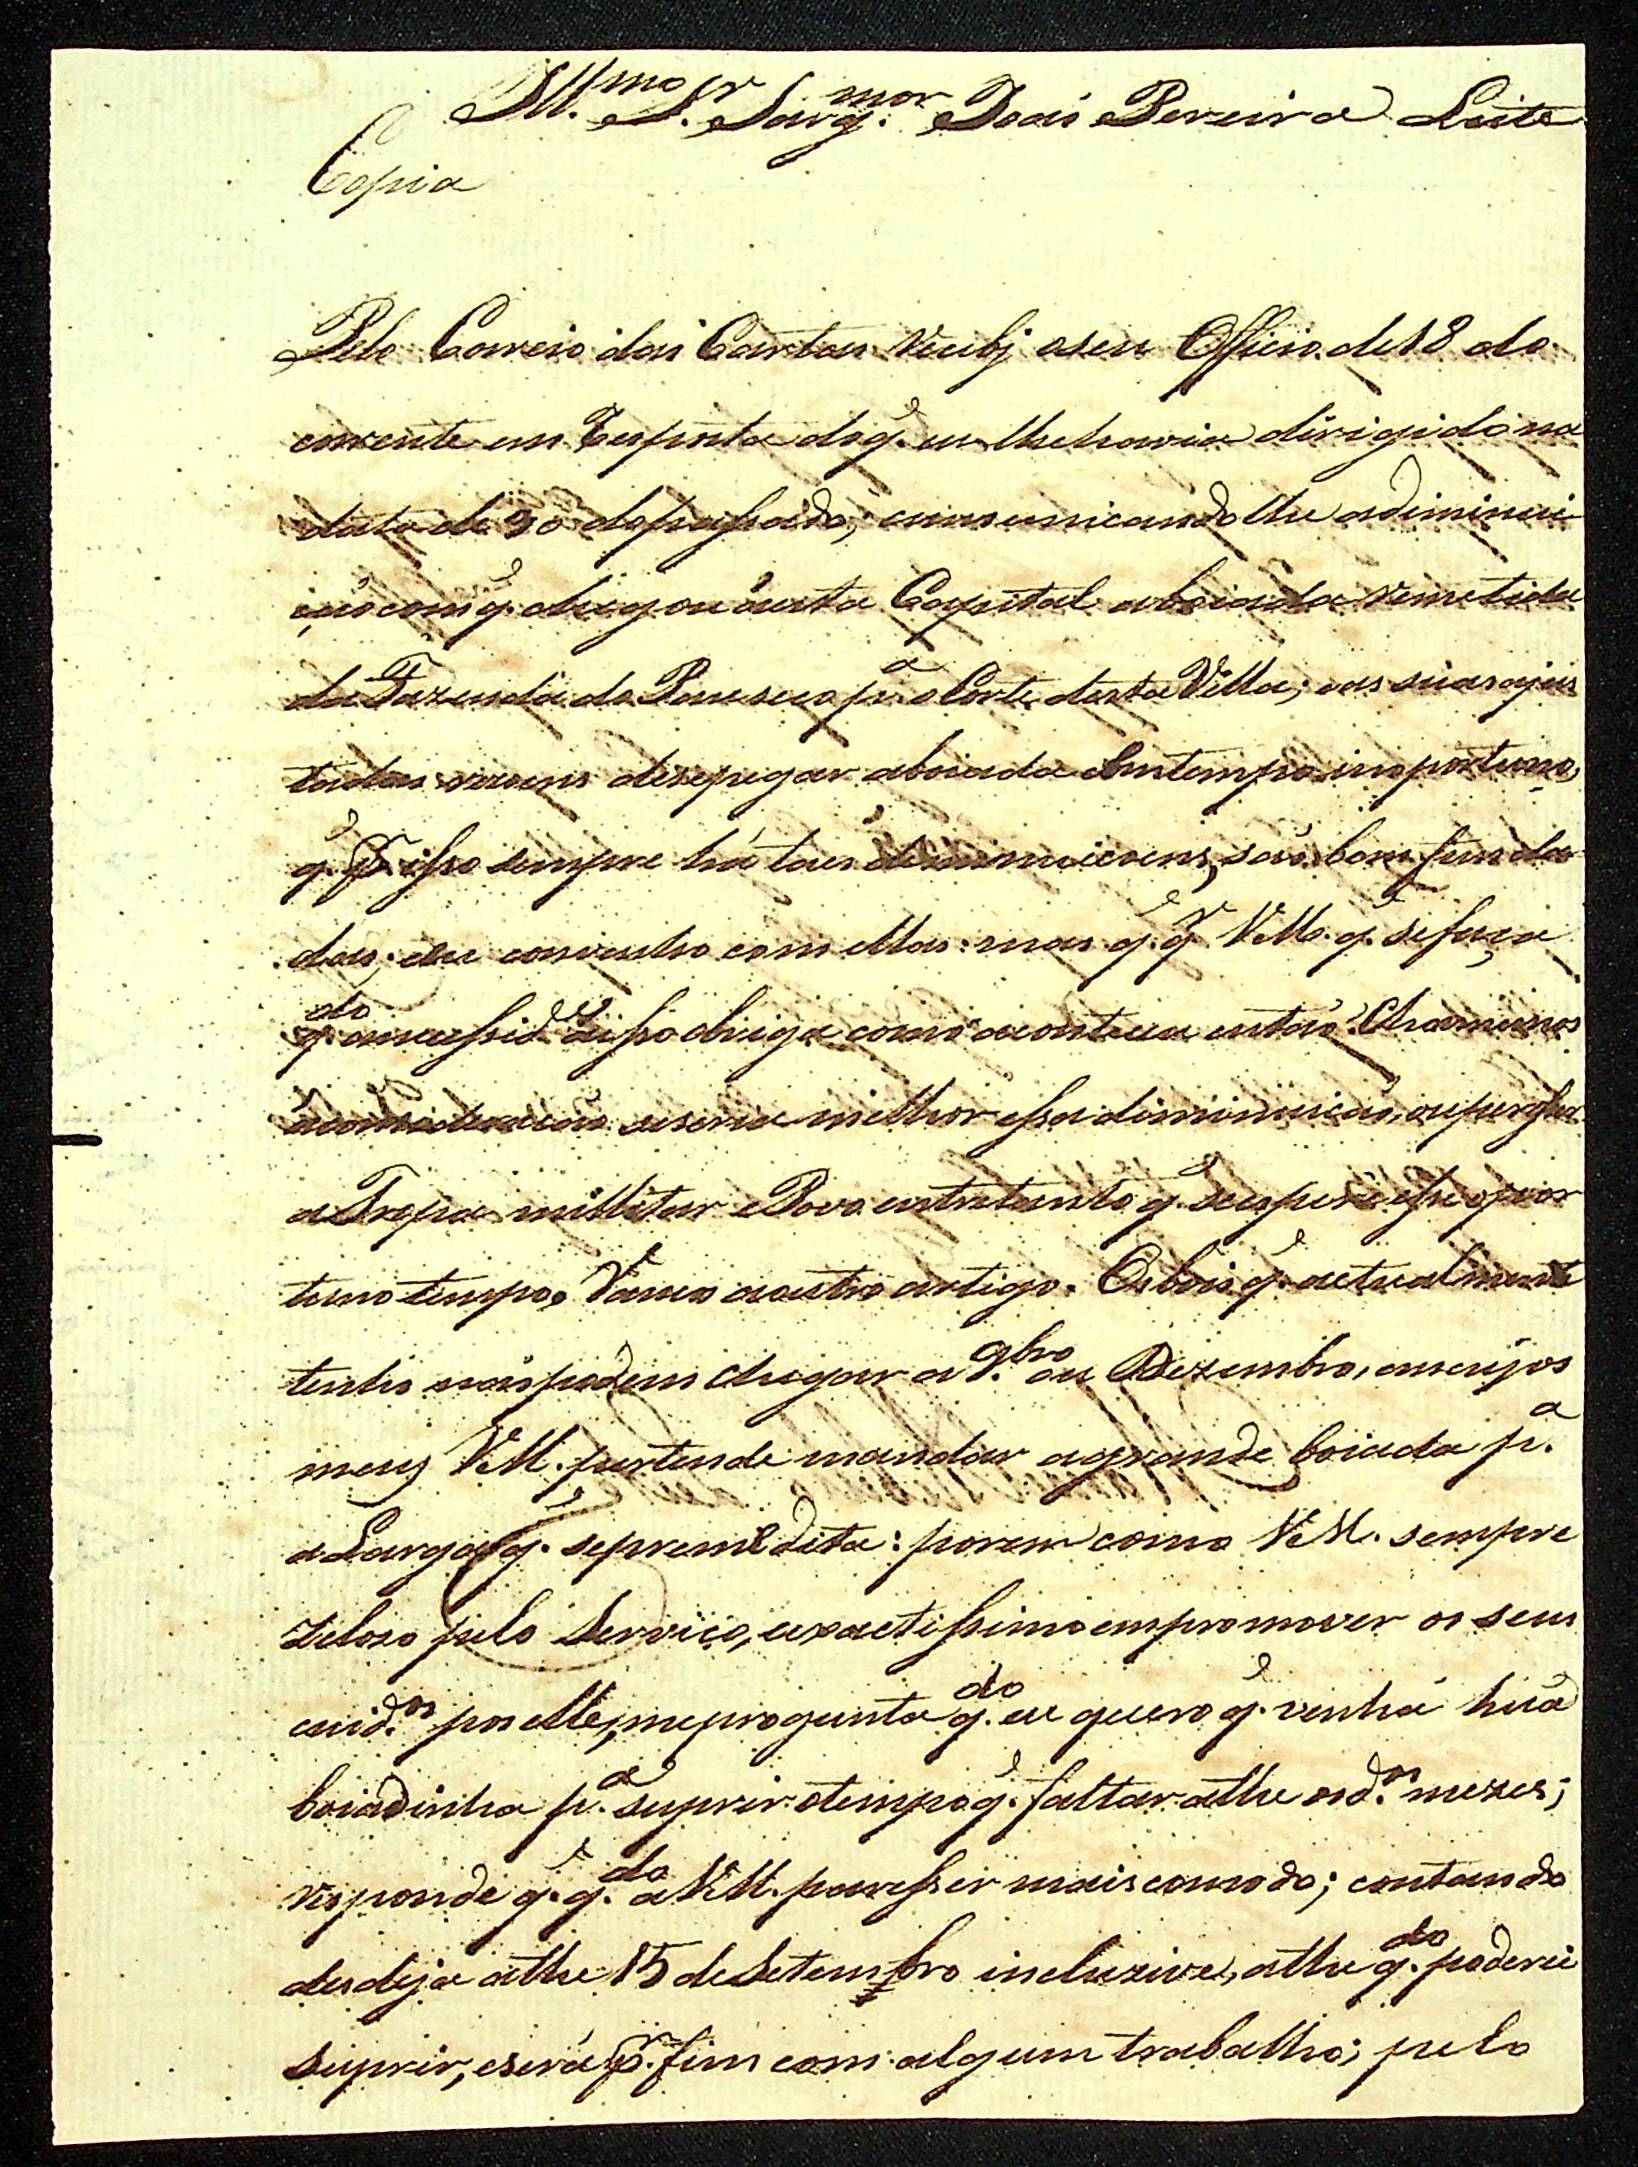 Ill.mo S.r Sarg.mor João Pereira Leite
Copia
Pelo Correio das Cartas recebj oseu Officio de 18 do
corrente em resposta do q.e eu lhe havia dirigido na
data de 30 do passado, cumunicandolhe adiminui
ção com q.e chegou áesta Capital aboiada remetida
da Fazenda do Pau seco p.a o Corte desta Villa; eas suas ajus
tadas rezoens desepegar aboiada em tempo inoportuno,
q.e p.r isso sempre há taes diminuiçoens, são bem funda
das; eu convenho com ellas: mas q.e q.r V.M. q.e sefaça
q.do anecessid.e aisso obriga como aconteceu então? Chamemos
áconsideração seseria milhor essa diminuição, ou
a Tropa millitar e Povo entretanto q.e seespera esse opor
tuno tempo. Vamos aoutro artigo. Os bois q.e actualmente
tenho não podem chegar a 9.bro ou Dezembro, emcujos
mezes V.M. pertende mandar agrande boiada p.a
a Larga q.e sepremedita: porem como V.M. sempre
zeloso pelo Serviço, exactissimo empromover os seus
cuid.os por elle, mepregunta q.do eu quero q.e venha húa
boiadinha p.a suprir otempo q.e faltar athe os d.os mezes;
responde q.e q.do a V.M. paresser mais comodo; contando
desdeja athe 15 de Setembro incluzive, athe q.do poderei
suprir, eserá p.r fim com algum trabalho; pelo